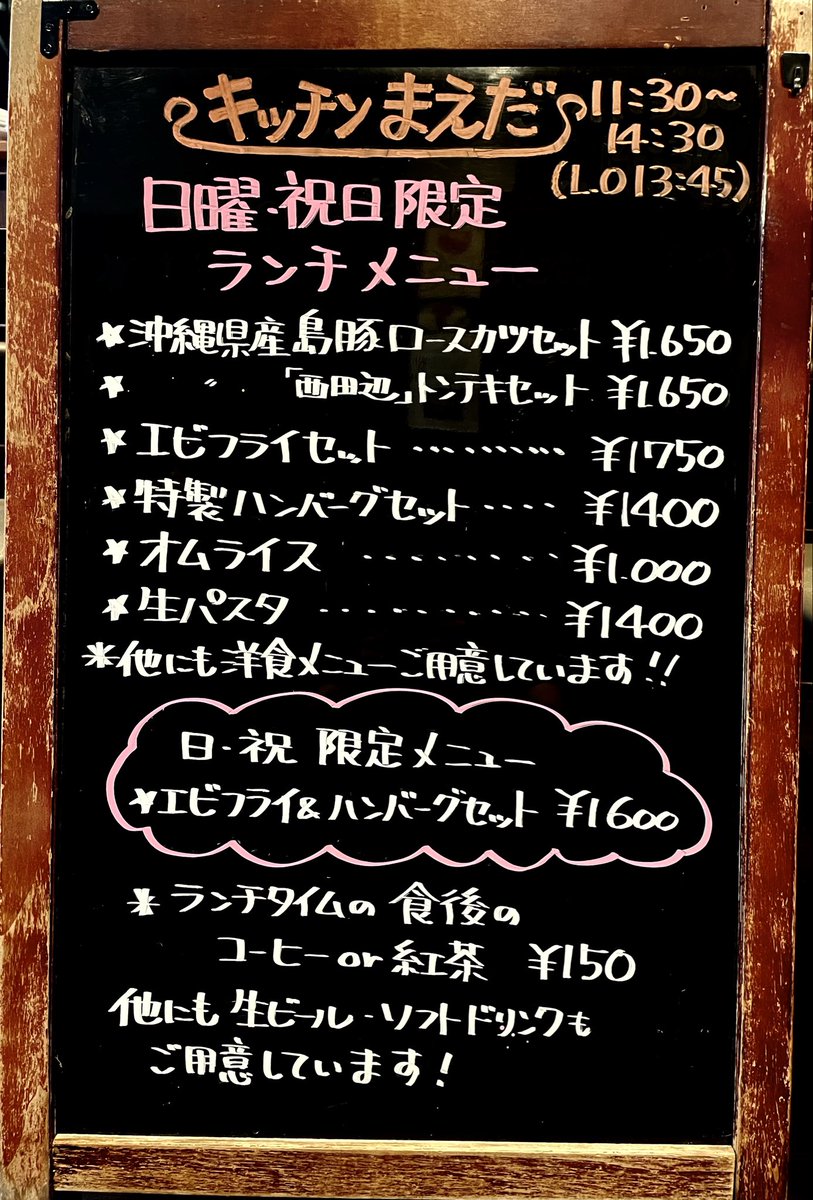 キッチンまえだ 11:30~
14:30
(L.O 13:45)
日曜・祝日限定
ランチメニュー
★沖縄県産島豚ロースカツセット ¥1.650
★ 〃 「西田辺」トンテキセット ¥1.650
★エビフライセット ‥‥‥‥‥ ¥1750
★特製ハンバーグセット ‥‥ ¥1400
★オムライス ‥‥‥‥‥ ¥1.000
★生パスタ ‥‥‥‥‥‥ ¥1400
*他にも洋食メニューご用意しています!!
日・祝 限定メニュー
★エビフライ&ハンバーグセット ¥1600
*ランチタイムの食後の
コーヒーor紅茶 ¥150
他にも生ビール・ソフトドリンクも
ご用意しています!